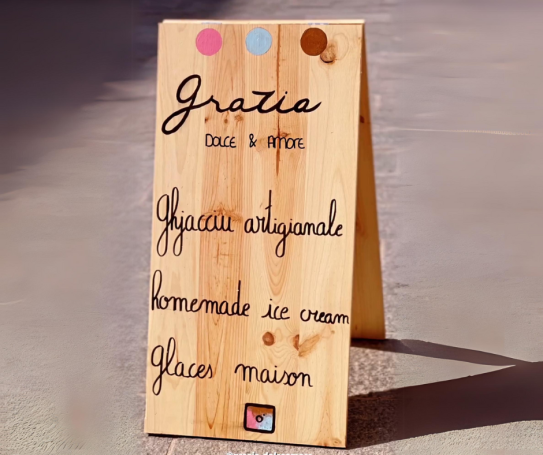 Grazia
DOLCE & AMORE
Ghjacciu artigianale
homemade ice cream
glaces maison